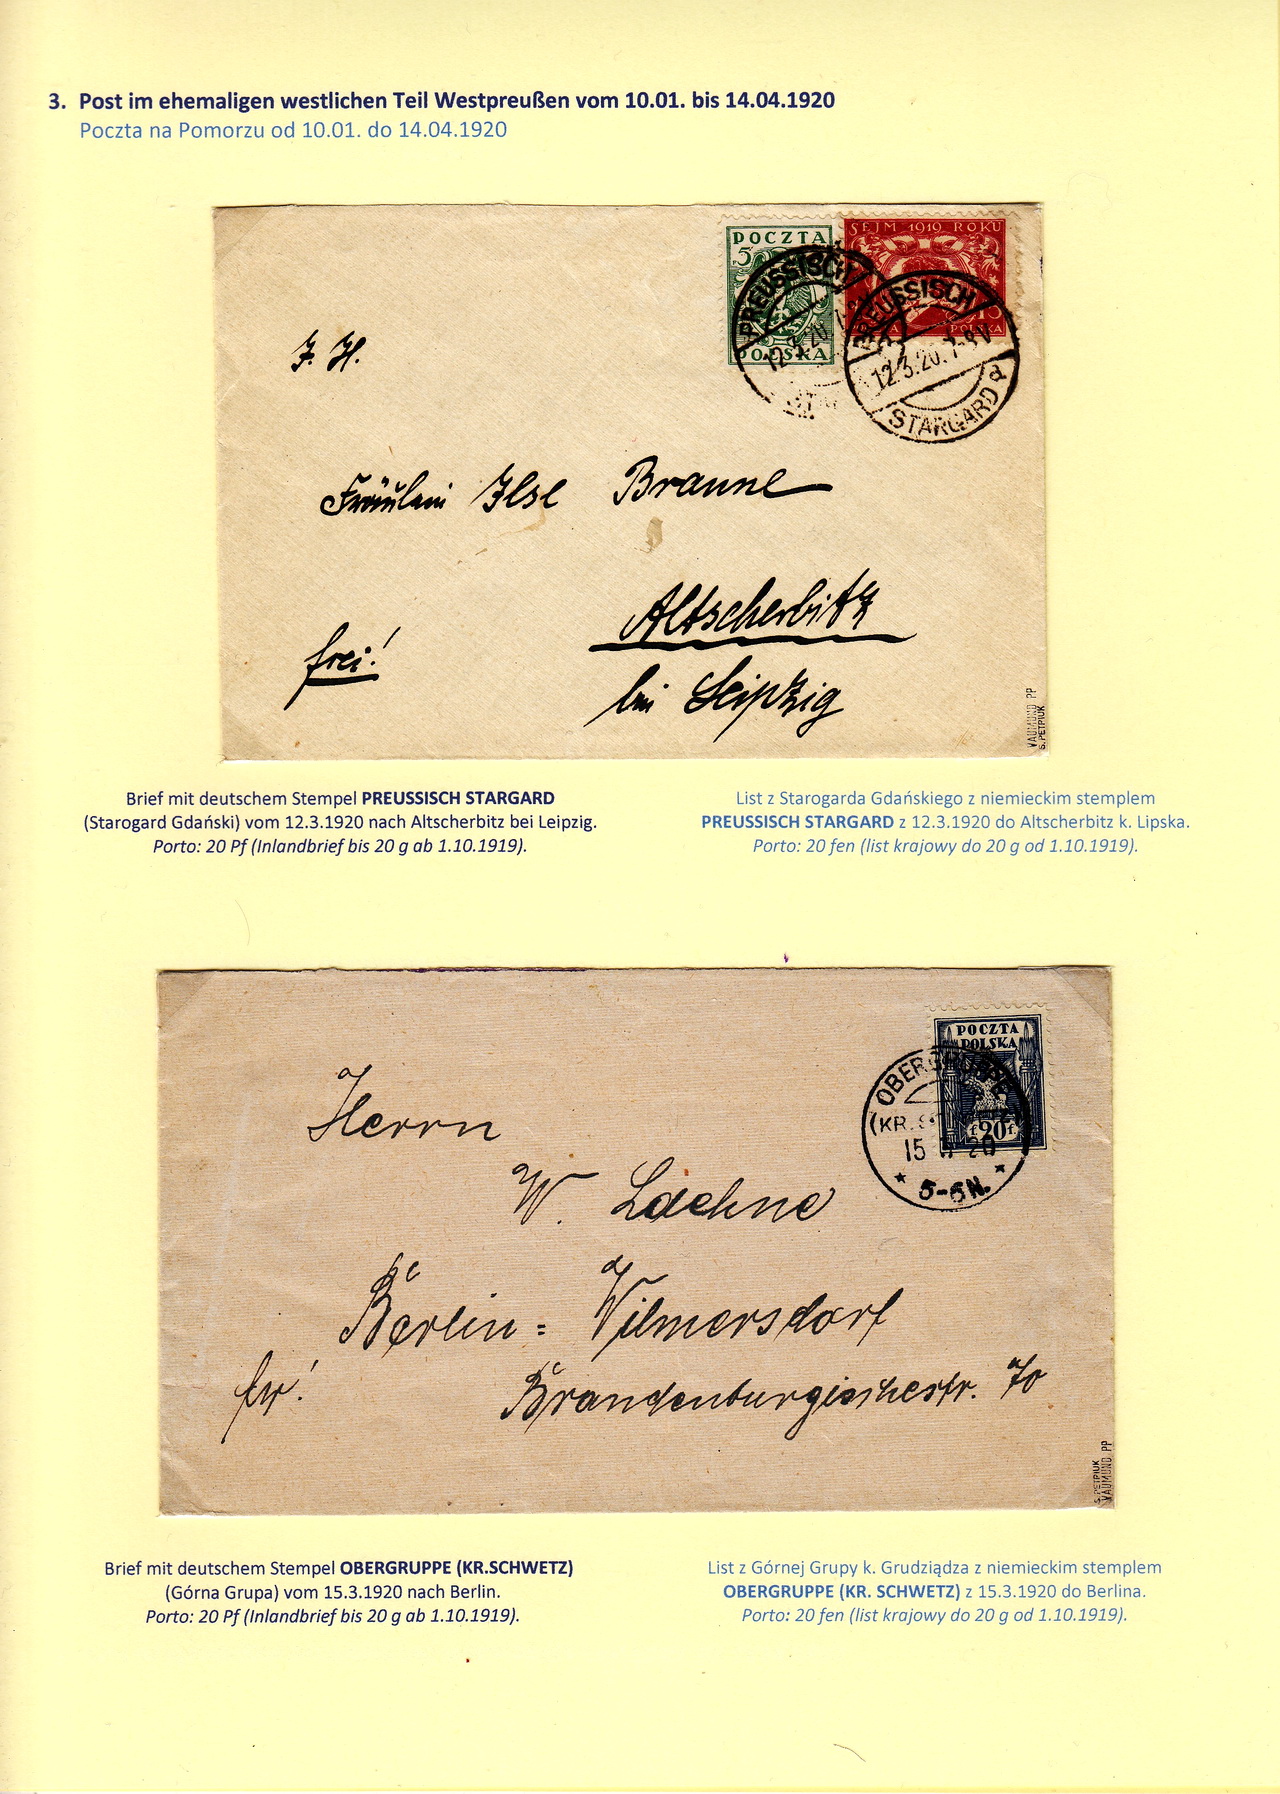 3. Post im ehemaligen westlichen Teil Westpreußen vom 10.01. bis 14.04.1920
Poczta na Pomorzu od 10.01. do 14.04.1920
POCZTA
5
POLSKA
SEJM 1919 ROKU
15
POLSKA
PREUSSISCH
12.3.20.
PREUSSISCH
12.3.20.7-8V
STARGARD
J. H.
Fräulein Ilse Braune
Altscherbitz
frei!
bei Leipzig
VAUMUND PP
S. PETRIUK
Brief mit deutschem Stempel PREUSSISCH STARGARD
(Starogard Gdański) vom 12.3.1920 nach Altscherbitz bei Leipzig.
Porto: 20 Pf (Inlandbrief bis 20 g ab 1.10.1919).
List z Starogarda Gdańskiego z niemieckim stemplem
PREUSSISCH STARGARD z 12.3.1920 do Altscherbitz k. Lipska.
Porto: 20 fen (list krajowy do 20 g od 1.10.1919).
POCZTA
POLSKA
f20f
OBERGRUPPE
(KR.
15 20
* 5-6N. *
Herrn
W. Laehne
Berlin = Wilmersdorf
fr!
Brandenburgischestr. 70
S. PETRIUK
VAUMUND PP
Brief mit deutschem Stempel OBERGRUPPE (KR.SCHWETZ)
(Górna Grupa) vom 15.3.1920 nach Berlin.
Porto: 20 Pf (Inlandbrief bis 20 g ab 1.10.1919).
List z Górnej Grupy k. Grudziądza z niemieckim stemplem
OBERGRUPPE (KR. SCHWETZ) z 15.3.1920 do Berlina.
Porto: 20 fen (list krajowy do 20 g od 1.10.1919).